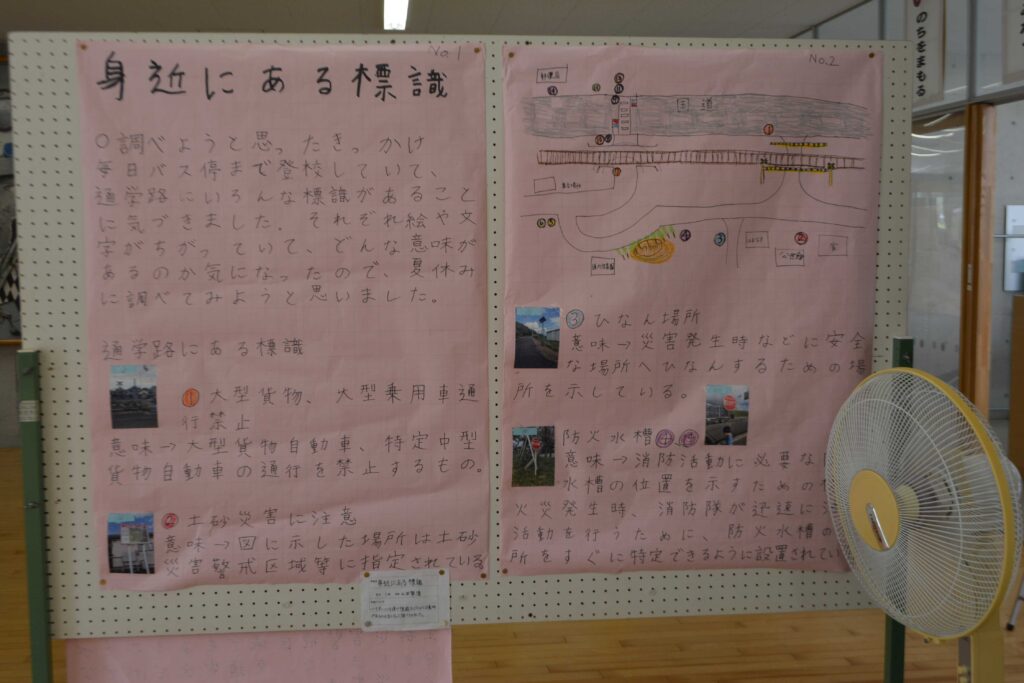 No.1
身近にある標識
○調べようと思ったきっかけ
毎日バス停まで登校していて、
通学路にいろんな標識があること
に気づきました。それぞれ絵や文
字がちがっていて、どんな意味が
あるのか気になったので、夏休み
に調べてみようと思いました。
通学路にある標識
①大型貨物、大型乗用車通
行禁止
意味→大型貨物自動車、特定中型
貨物自動車の通行を禁止するもの。
②土砂災害に注意
意味→図に示した場所は土砂
災害警戒区域等に指定されている
身近にある標識
No.2
郵便局
国道
①
②
③
家
③ひなん場所
意味→災害発生時などに安全
な場所へひなんするための場
所を示している。
防火水槽
意味→消防活動に必要な
水槽の位置を示すための
火災発生時、消防隊が迅速に
活動を行うために、防火水槽の
所をすぐに特定できるように設置されてい
のちをまもる